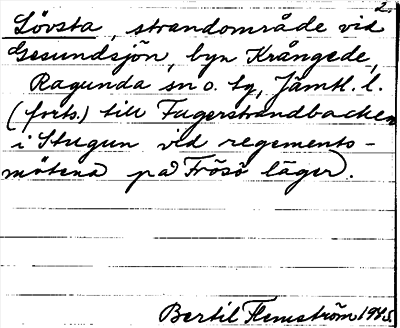 2.
Lövsta, strandområde vid
Gesundsjön, byn Krångede,
Ragunda sn o. tg, Jämtl. l.
(forts.) till Fagerstrandbacken
i Stugun vid regements-
mötena på Frösö läger).
Bertil Flemström 1985